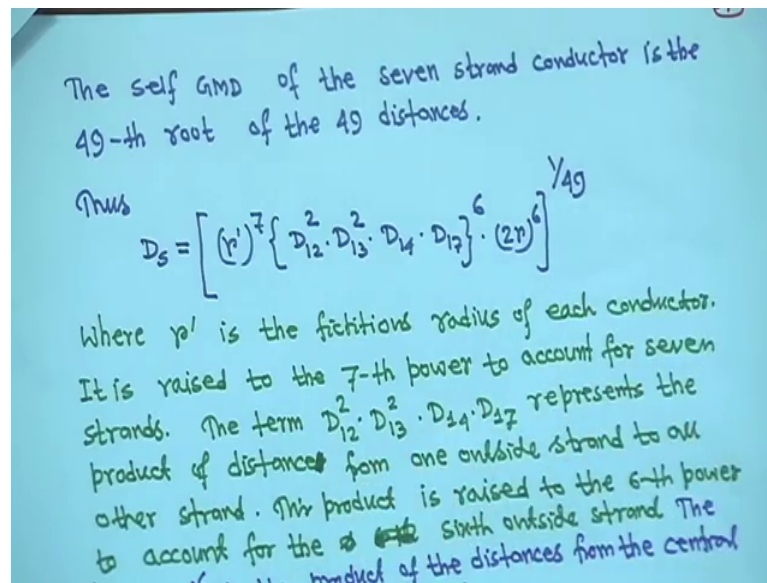 The self GMD of the seven strand conductor is the
49-th root of the 49 distances.
Thus
D_s = [(r')^7 {D_12^2 · D_13^2 · D_14 · D_17}^6 · (2r)^6]^1/49
Where r' is the fictitious radius of each conductor.
It is raised to the 7-th power to account for seven
strands. The term D_12^2 · D_13^2 · D_14 · D_17 represents the
product of distances from one outside strand to all
other strand. This product is raised to the 6-th power
to account for the sixth outside strand The
product of the distances from the central